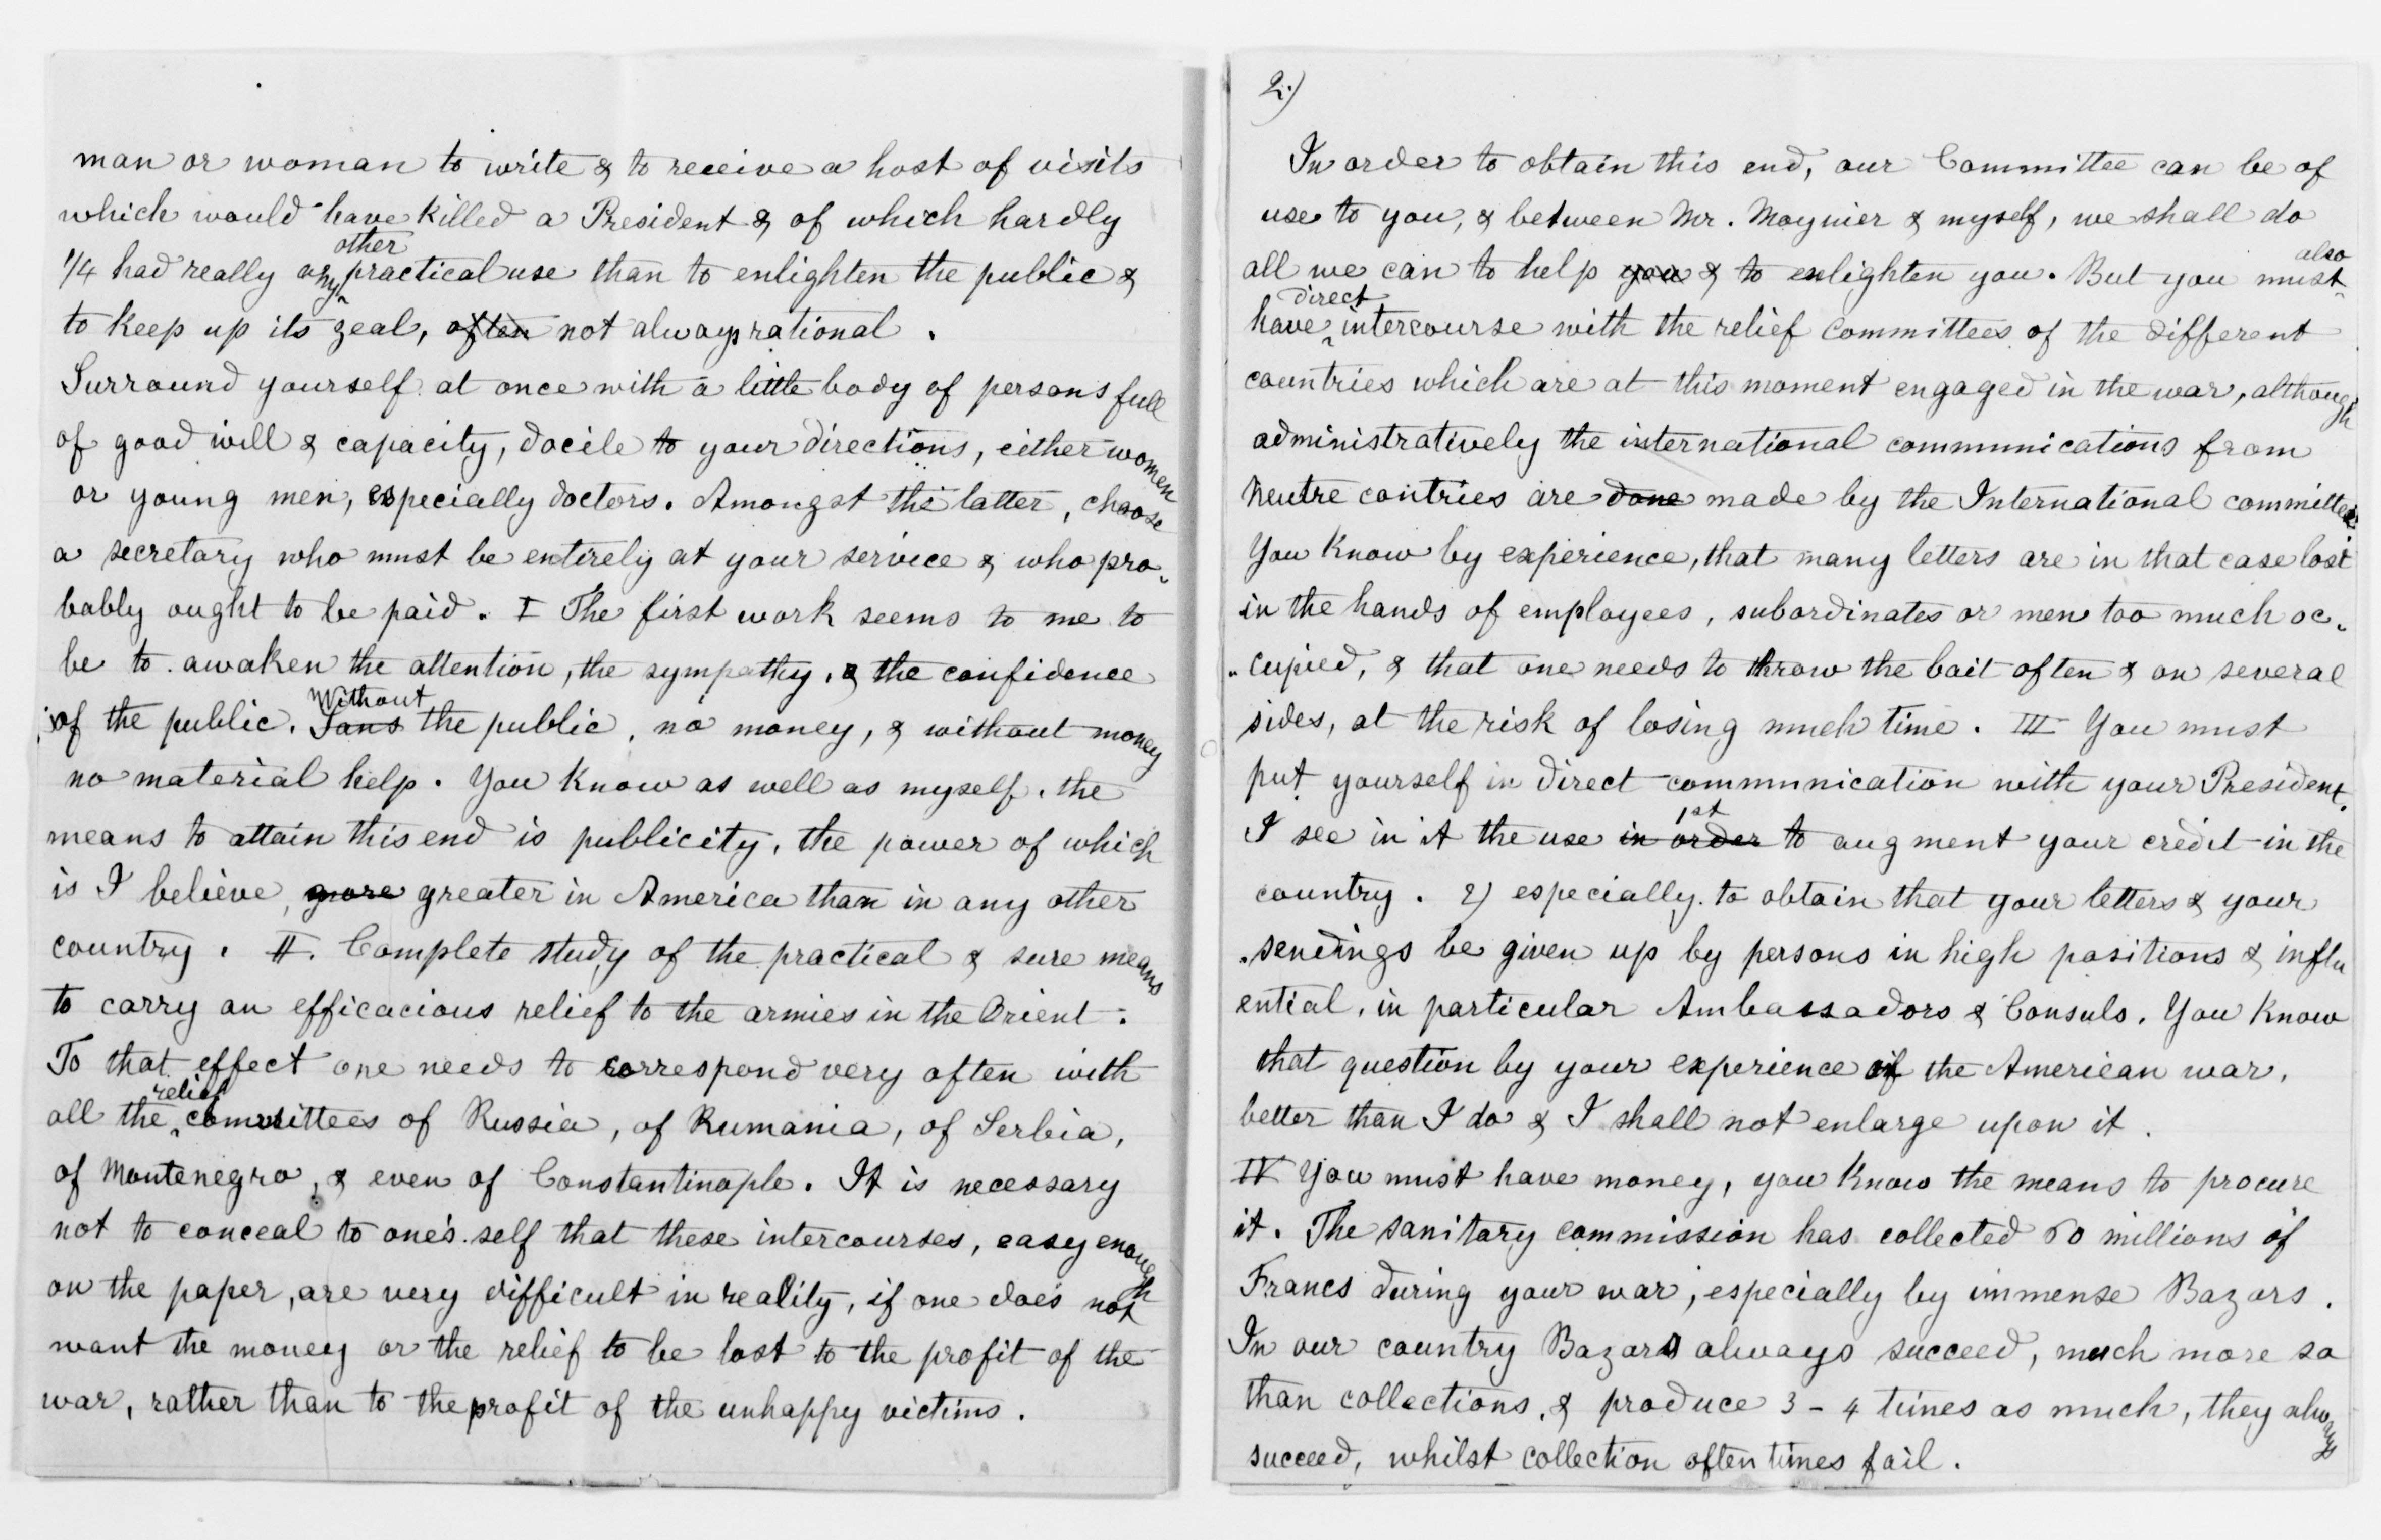 man or woman to write & to receive a host of visits
which would have killed a President & of which hardly
other
1/4 had really any practical use than to enlighten the public &
to keep up its zeal, often not always rational.
Surround yourself at once with a little body of persons full
of good will & capacity, docile to your directions, either women
or young men, especially doctors. Amongst the latter, choose
a secretary who must be entirely at your service & who pro-
bably ought to be paid. I The first work seems to me to
be to awaken the attention, the sympathy, & the confidence
Without
of the public. Sans the public, no money, & without money
no material help. You know as well as myself, the
means to attain this end is publicity, the power of which
is I believe, more greater in America than in any other
country. II. Complete study of the practical & sure means
to carry an efficacious relief to the armies in the Orient.
To that effect one needs to correspond very often with
relief
all the committees of Russia, of Rumania, of Serbia,
of Montenegro, & even of Constantinople. It is necessary
not to conceal to one's self that these intercourses, easy enough
on the paper, are very difficult in reality, if one does not
want the money or the relief to be lost to the profit of the
war, rather than to the profit of the unhappy victims.
2.)
In order to obtain this end, our Committee can be of
use to you, & between Mr. Moynier & myself, we shall do
also
all we can to help you & to enlighten you. But you must
direct
have intercourse with the relief committees of the different
countries which are at this moment engaged in the war, although
administratively the international communications from
Neutre contries are done made by the International committee.
You know by experience, that many letters are in that case lost
in the hands of employees, subordinates or men too much oc-
-cupied, & that one needs to throw the bait often & on several
sides, at the risk of losing much time. III You must
put yourself in direct communication with your President.
1st
I see in it the use in order to augment your credit in the
country. 2) especially to obtain that your letters & your
sendings be given up by persons in high positions & influ
ential, in particular Ambassadors & Consuls. You know
that question by your experience of the American war,
better than I do & I shall not enlarge upon it.
IV You must have money, you know the means to procure
it. The sanitary commission has collected 60 millions of
Francs during your war, especially by immense Bazars.
In our country Bazars always succeed, much more so
than collections, & produce 3-4 times as much, they always
succeed, whilst collection often times fail.